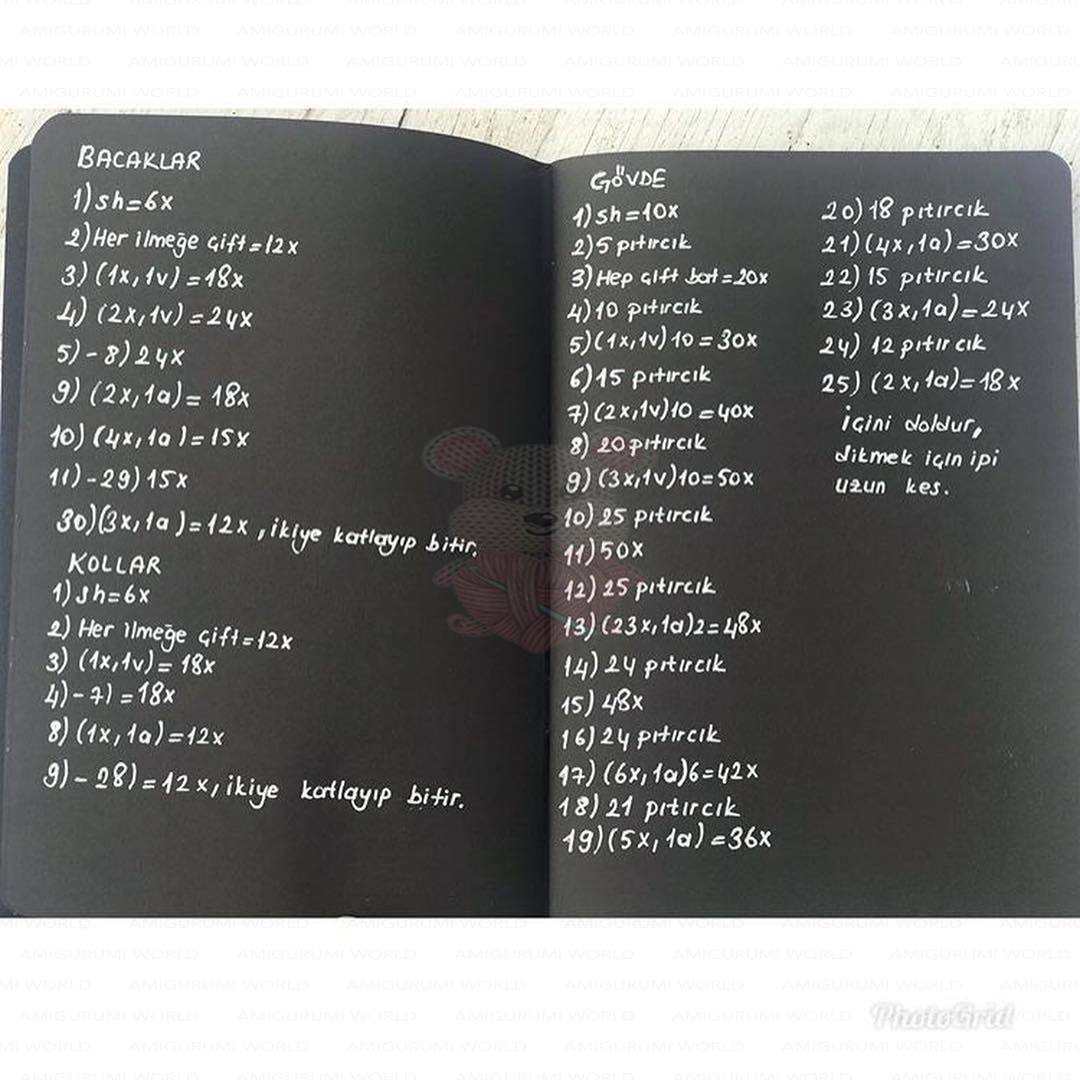 BACAKLAR
1) sh=6x
2) Her ilmeğe çift=12x
3) (1x,1v)=18x
4) (2x,1v)=24x
5)-8) 24x
9) (2x,1a)=18x
10) (4x,1a)=15x
11)-29) 15x
30) (3x,1a)=12x, ikiye katlayıp bitir.
KOLLAR
1) sh=6x
2) Her ilmeğe çift=12x
3) (1x,1v)=18x
4)-7)=18x
8) (1x,1a)=12x
9)-28)=12x, ikiye katlayıp bitir.
GÖVDE
1) sh=10x
2) 5 pıtırcık
3) Hep çift bat=20x
4) 10 pıtırcık
5) (1x,1v)10=30x
6) 15 pıtırcık
7) (2x,1v)10=40x
8) 20 pıtırcık
9) (3x,1v)10=50x
10) 25 pıtırcık
11) 50x
12) 25 pıtırcık
13) (23x,1a)2=48x
14) 24 pıtırcık
15) 48x
16) 24 pıtırcık
17) (6x,1a)6=42x
18) 21 pıtırcık
19) (5x,1a)=36x
20) 18 pıtırcık
21) (4x,1a)=30x
22) 15 pıtırcık
23) (3x,1a)=24x
24) 12 pıtırcık
25) (2x,1a)=18x
içini doldur,
dikmek için ipi
uzun kes.
PhotoGrid
AMIGURUMI WORLD